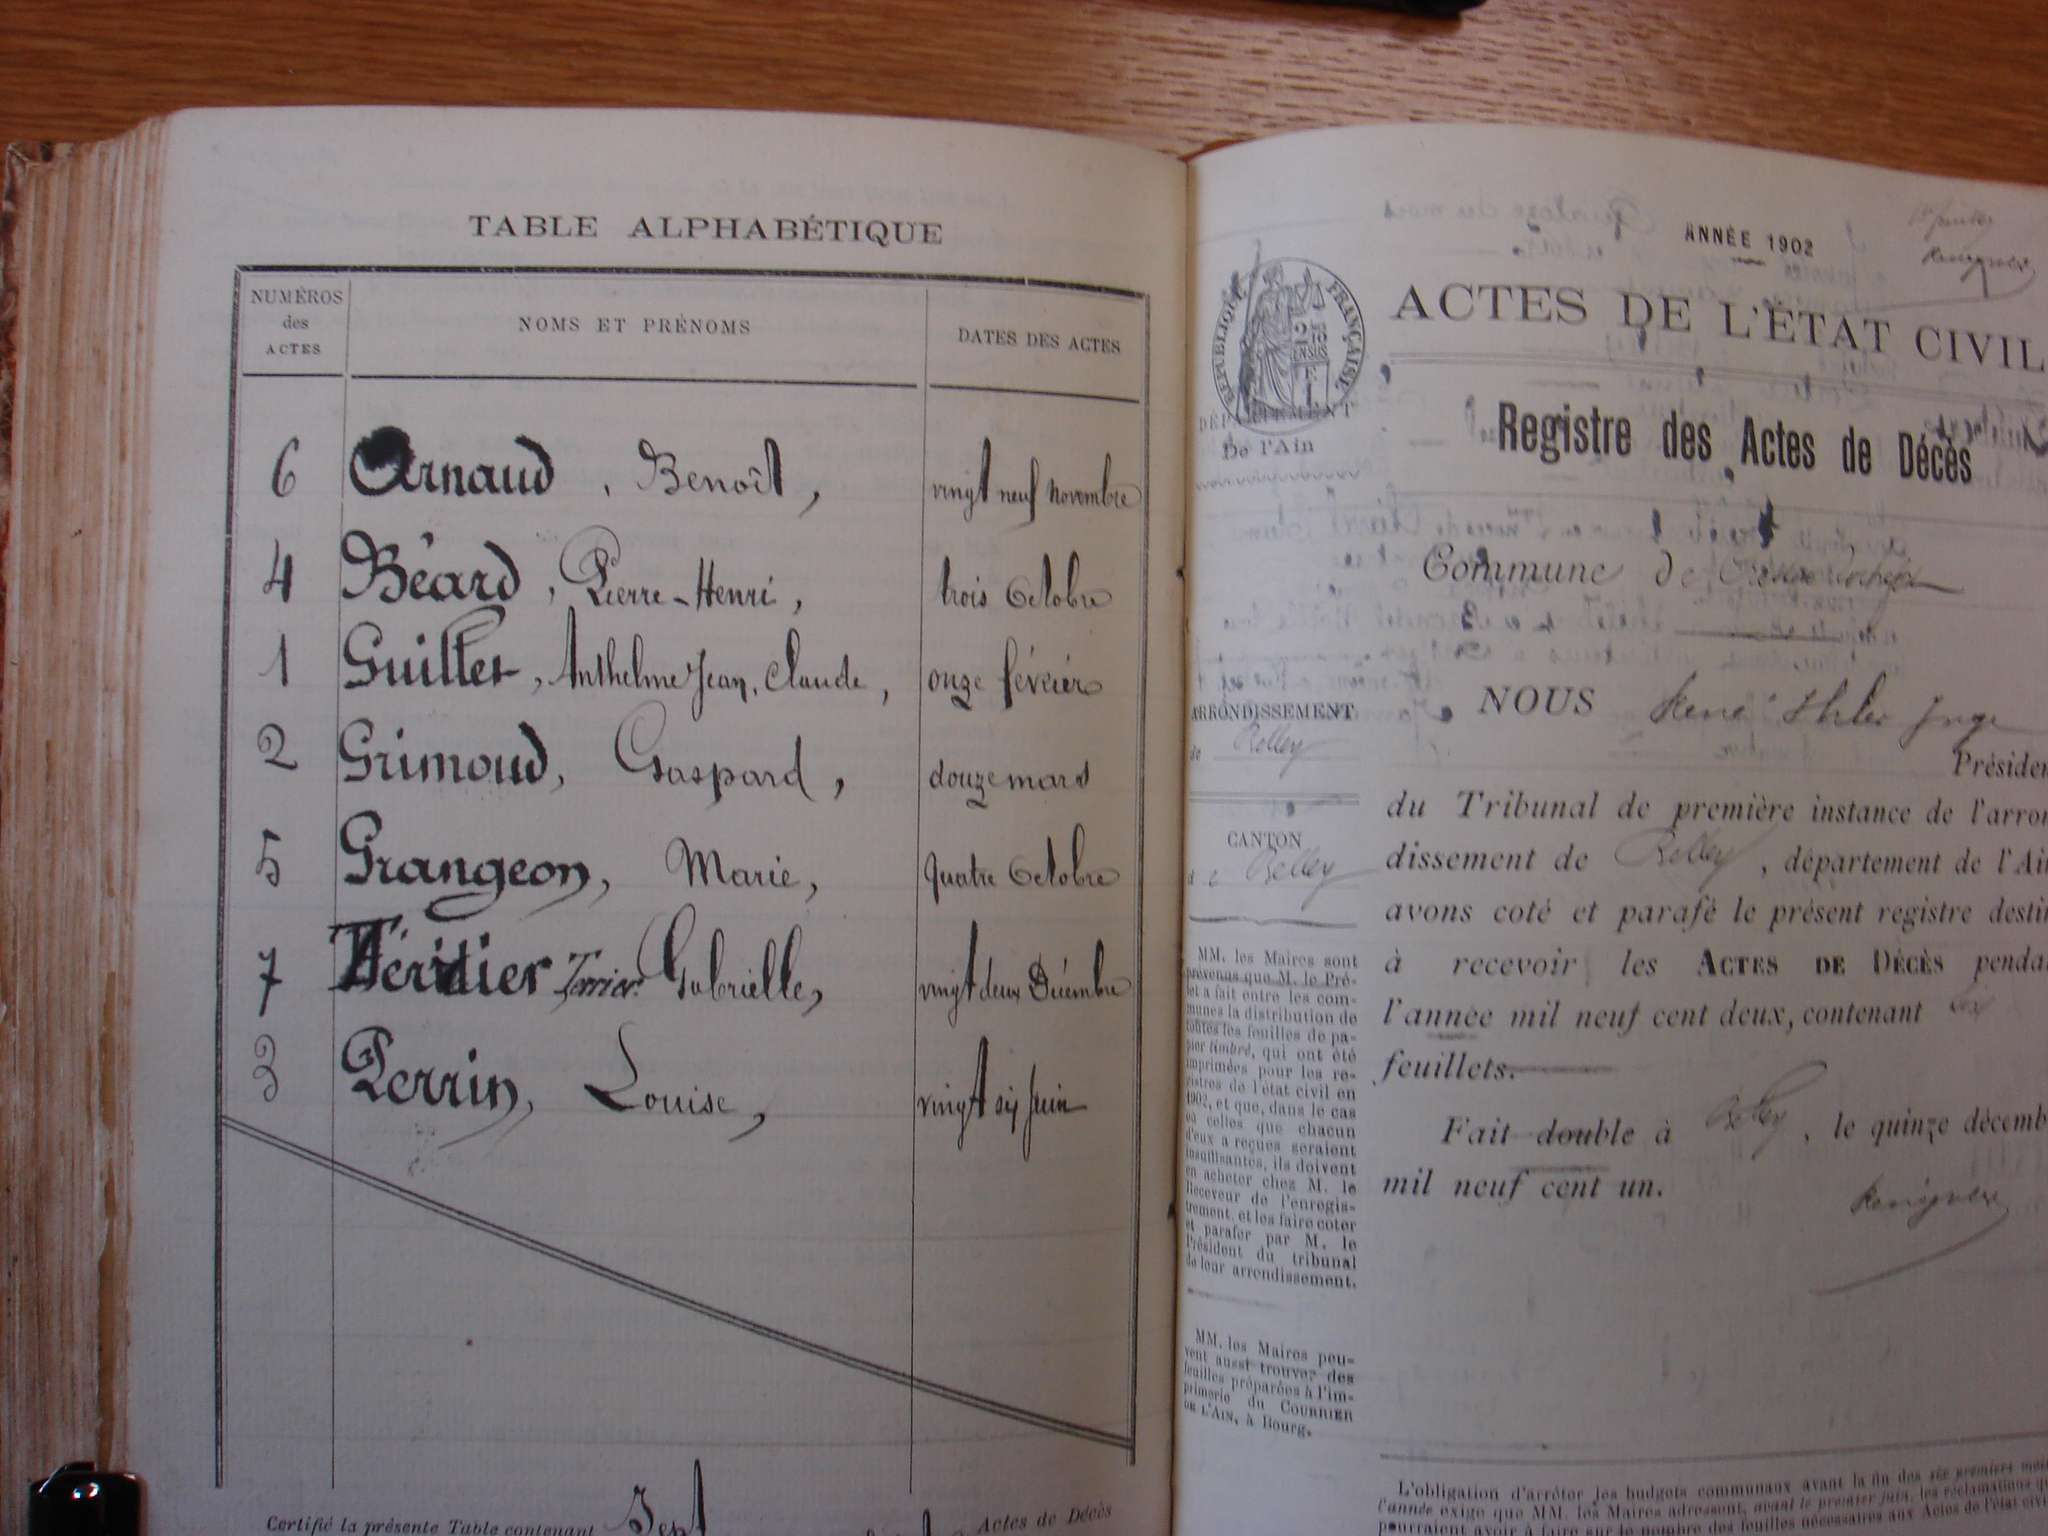 TABLE ALPHABÉTIQUE
NUMÉROS des ACTES
NOMS ET PRÉNOMS
DATES DES ACTES
6 Arnaud, Benoît, vingt neuf novembre
4 Béard, Pierre-Henri, trois Octobre
1 Guillet, Anthelme Jean, Claude, onze février
2 Grimoud, Gaspard, douze mars
5 Grangeon, Marie, quatre Octobre
7 Gabrielle, vingt deux Décembre
3 Perrin, Louise, vingt six juin
Certifié la présente Table contenant Sept Actes de Décès
ANNÉE 1902
RÉPUBLIQUE FRANÇAISE
ACTES DE L'ÉTAT CIVIL
DÉPARTEMENT
De l'Ain
Registre des Actes de Décès
Commune de
ARRONDISSEMENT
de Belley
CANTON
de Belley
NOUS René Juge
Présiden
du Tribunal de première instance de l'arron
dissement de Belley, département de l'Ain
avons coté et parafé le présent registre destin
à recevoir les ACTES DE DÉCÈS penda
l'année mil neuf cent deux, contenant
feuillets.
Fait double à Belley, le quinze décemb
mil neuf cent un.
MM. les Maires sont
prévenus que M. le Pré-
fet a fait entre les com-
munes la distribution de
toutes les feuilles de pa-
pier timbré, qui ont été
imprimées pour les re-
gistres de l'état civil en
1902, et que, dans le cas
où celles que chacun
d'eux a reçues seraient
insuffisantes, ils doivent
en acheter chez M. le
Receveur de l'enregis-
trement, et les faire coter
et parafer par M. le
Président du tribunal
de leur arrondissement.
MM. les Maires peu-
vent aussi trouver des
feuilles préparées à l'im-
primerie du COURRIER
DE L'AIN, à Bourg.
L'obligation d'arrêter les budgets communaux avant la fin des six premiers moi
l'année exige que MM. les Maires adressent, avant le premier juin, les réclamations qu
pourraient avoir à faire sur le nombre des feuilles nécessaires aux Actes de l'état civi